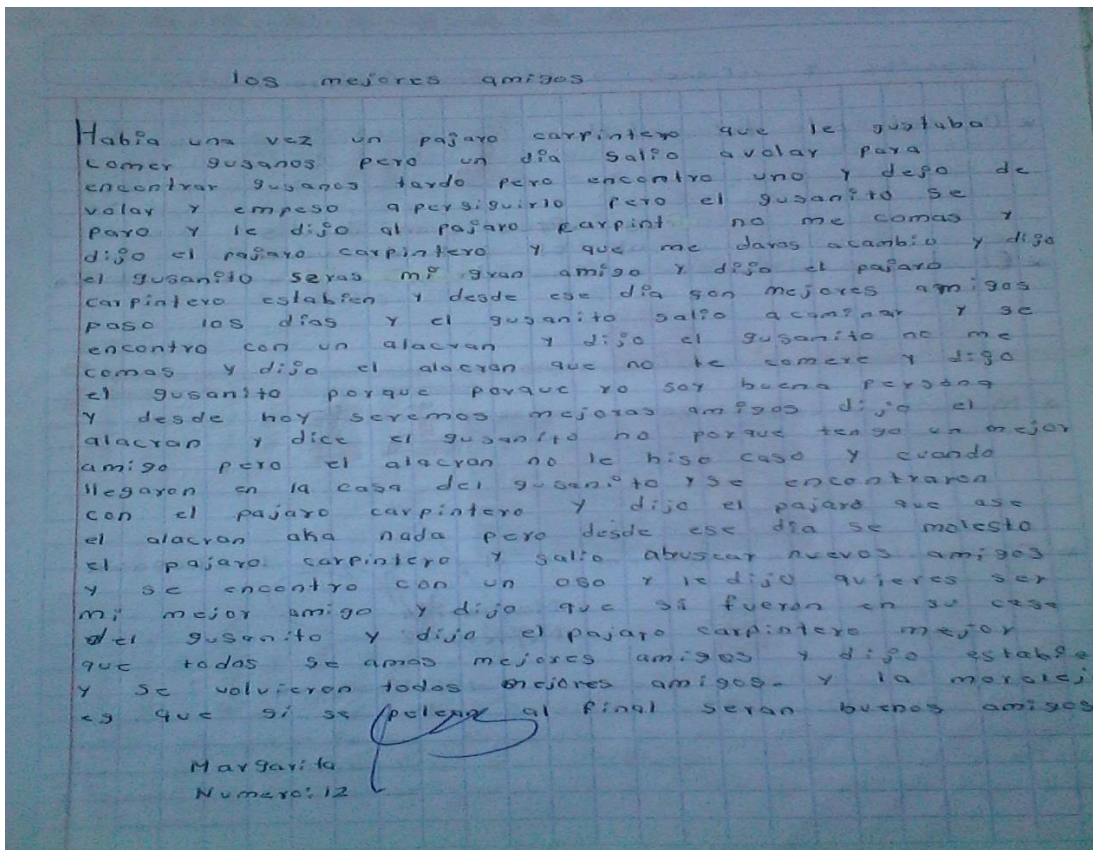 los mejores amigos
Había una vez un pajaro carpintero que le gustaba
comer gusanos pero un día salio avolar para
encontrar gusanos tardo pero encontro uno y dejo de
volar y empeso a persiguirlo pero el gusanito se
paro y le dijo al pajaro carpint no me comas y
dijo el pajaro carpintero y que me daras acambio y dijo
el gusanito seras mi gran amigo y dijo el pajaro
carpintero estabien y desde ese día son mejores amigos
paso los días y el gusanito salio acaminar y se
encontro con un alacran y dijo el gusanito no me
comas y dijo el alacran que no te comere y dijo
el gusanito porque porque yo soy buena persona
y desde hoy seremos mejoras amigos dijo el
alacran y dice el gusanito no porque tengo un mejor
amigo pero el alacran no le hiso caso y cuando
llegaron en la casa del gusanito y se encontraron
con el pajaro carpintero y dijo el pajaro que ase
el alacran aka nada pero desde ese dia se molesto
el pajaro carpintero y salio abuscar nuevos amigos
y se encontro con un oso y le dijo quieres ser
mi mejor amigo y dijo que si fueron en su casa
del gusanito y dijo el pajaro carpintero mejor
que todos se amos mejores amigos y dijo estabie
y se volvieron todos mejores amigos. y la moralej
es que si se pelean al final seran buenos amigos
Margarita
Numero: 12